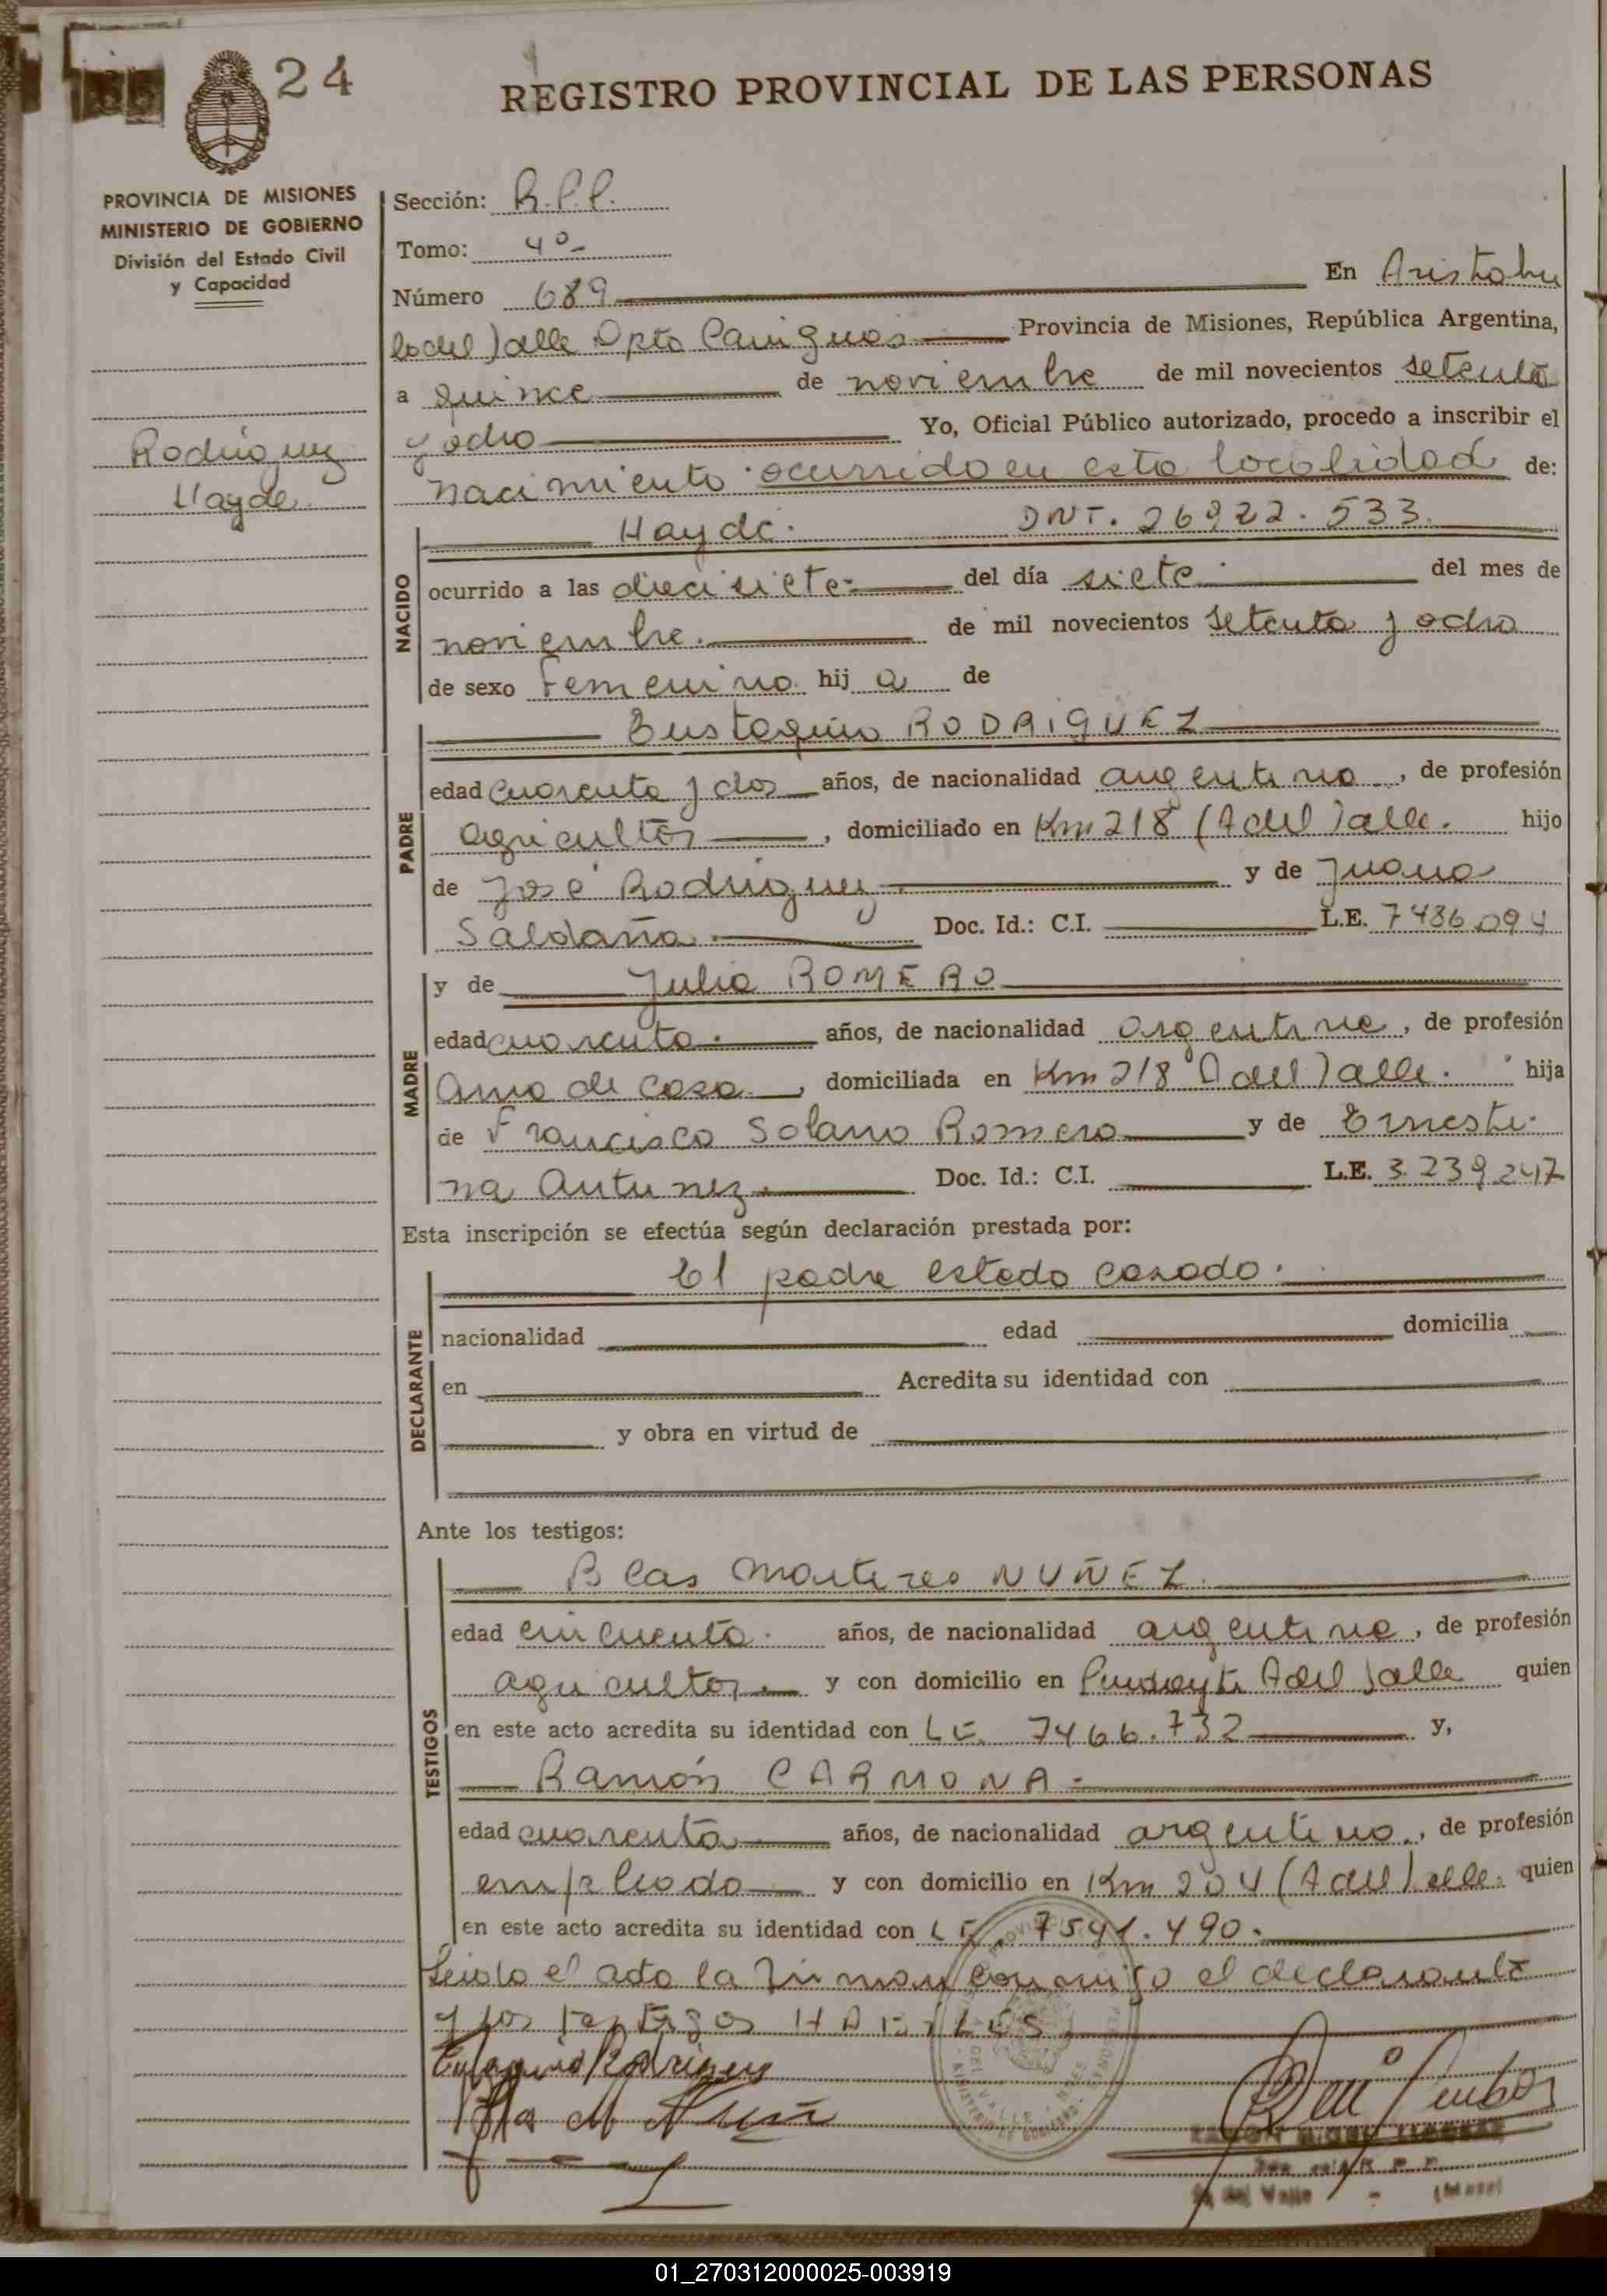 24
REGISTRO PROVINCIAL DE LAS PERSONAS
PROVINCIA DE MISIONES
MINISTERIO DE GOBIERNO
División del Estado Civil
y Capacidad
Rodriguez
Hayde.
Sección: R.P.P.
Tomo: 4º
Número 689 En Aristobu
lo del Valle Dpto Cainguas Provincia de Misiones, República Argentina,
a quince de noviembre de mil novecientos setenta
y ocho Yo, Oficial Público autorizado, procedo a inscribir el
nacimiento ocurrido en esta localidad de:
NACIDO
Hayde. DNI. 26922.533.
ocurrido a las diecisiete del día siete del mes de
noviembre. de mil novecientos setenta y ocho
de sexo Femenino hij a de
PADRE
Eustaquio RODRIGUEZ
edad cuarenta y dos años, de nacionalidad argentino, de profesión
agricultor, domiciliado en Km 218 (A del Valle. hijo
de José Rodriguez y de Juana
Saldaña. Doc. Id.: C.I. L.E. 7486.094
MADRE
y de Julia ROMERO
edad cuarenta. años, de nacionalidad argentina, de profesión
ama de casa, domiciliada en Km 218 A del Valle. hija
de Francisco Solano Romero y de Ernesti
na Antunez. Doc. Id.: C.I. L.E. 3.239.247
Esta inscripción se efectúa según declaración prestada por:
DECLARANTE
El padre estado casado.
nacionalidad edad domicilia
en Acredita su identidad con
y obra en virtud de
Ante los testigos:
TESTIGOS
Blas Martires NUÑEZ.
edad cincuenta. años, de nacionalidad argentino, de profesión
agricultor y con domicilio en A del Valle quien
en este acto acredita su identidad con LE. 7466.732 y,
Ramón CARMONA
edad cuarenta años, de nacionalidad argentino, de profesión
empleado y con domicilio en Km 204 (A del Valle. quien
en este acto acredita su identidad con LE. 7541.490.
Leida el acta la firman conmigo el declarante
y los testigos HABILES
Eustaquio Rodriguez
01_270312000025-003919